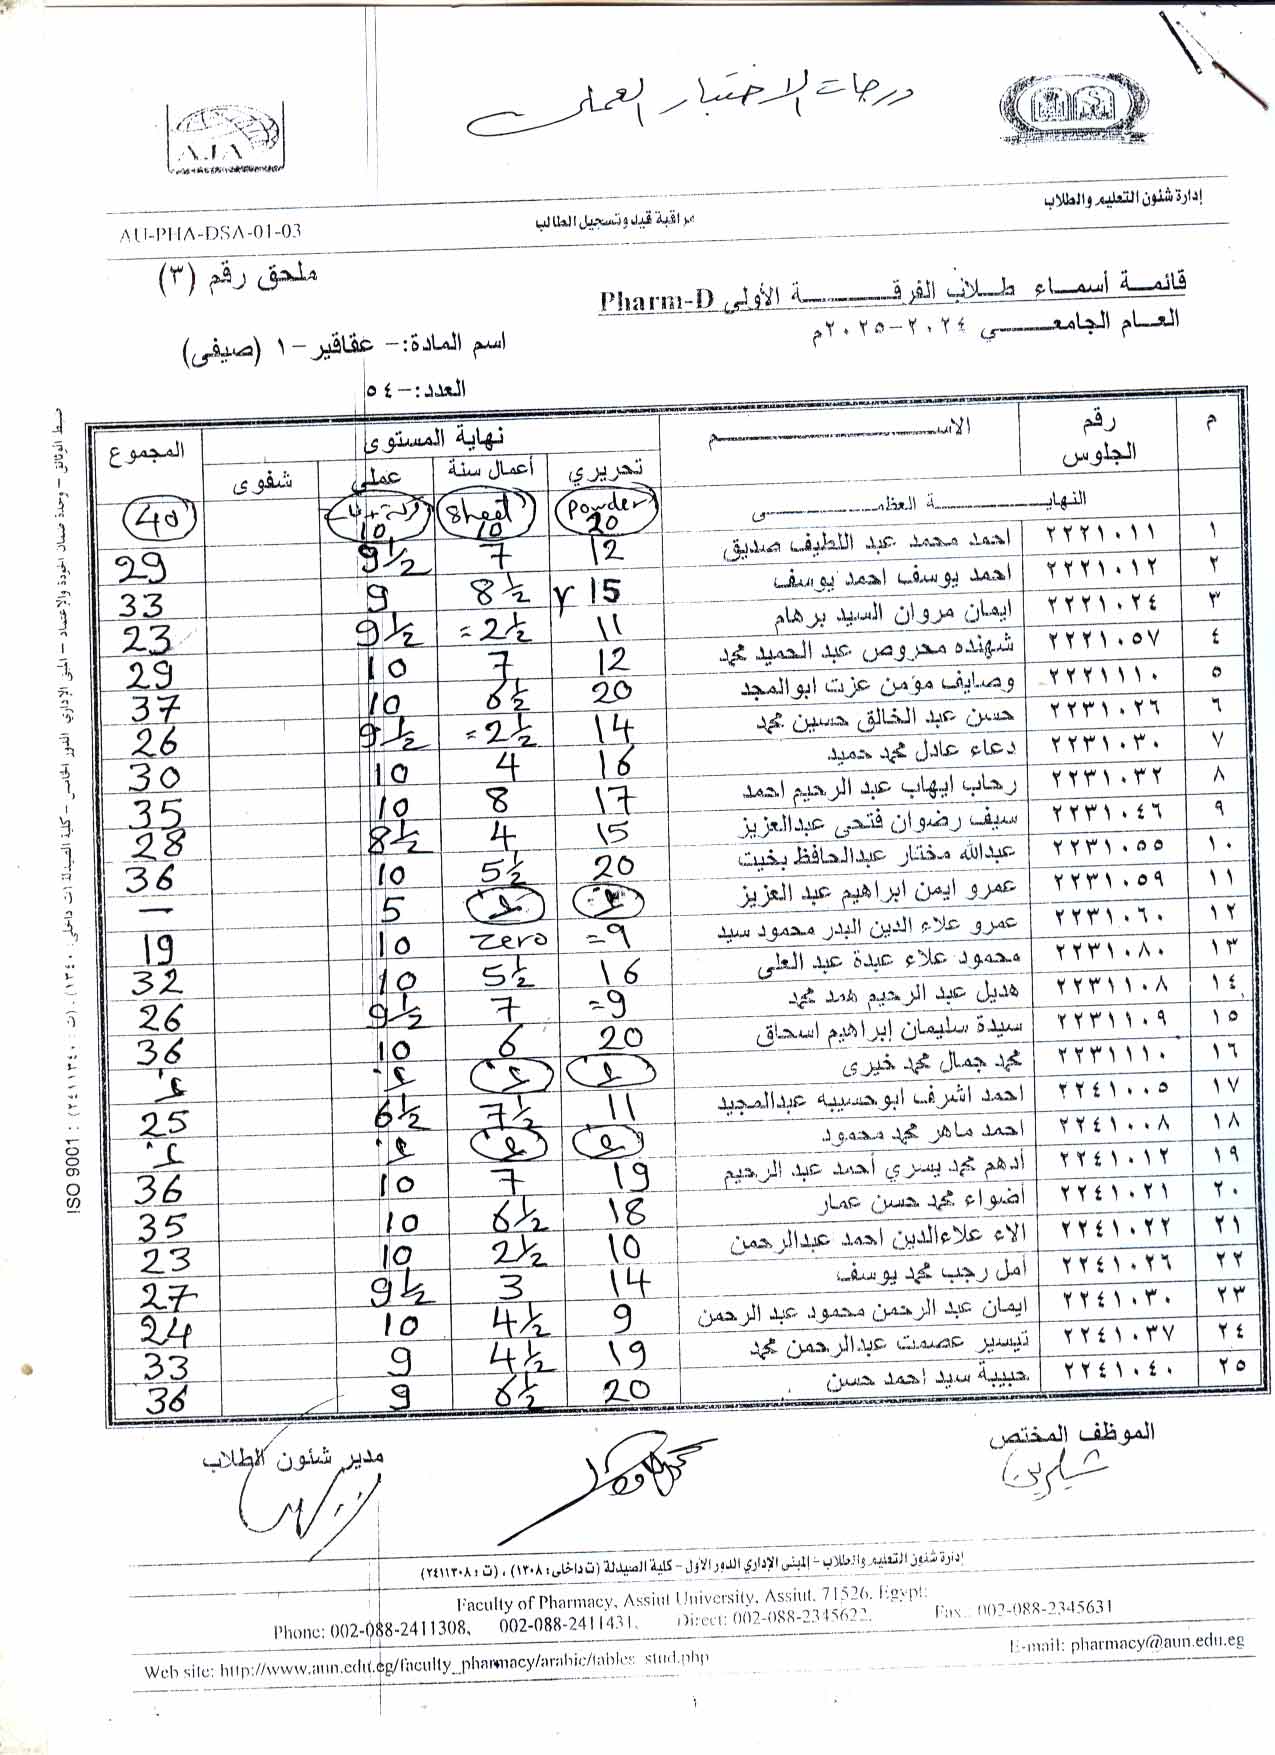 درجات الاختبار العملى
A.I.A
إدارة شئون التعليم والطلاب
مراقبة قيد وتسجيل الطالب
AU-PHA-DSA-01-03
ملحق رقم (٣)
قائمة أسماء طلاب الفرقة الأولى Pharm-D
العام الجامعي ٢٠٢٤-٢٠٢٥م
اسم المادة:- عقاقير -١ (صيفى)
العدد:- ٥٤
م رقم الجلوس الاسم نهاية المستوى المجموع
تحريري أعمال سنة عملي شفوى
النهاية العظمى Powder 20 Sheet 10 10 40
١ ٢٢٢١٠١١ احمد محمد عبد اللطيف صديق 12 7 9½ 29
٢ ٢٢٢١٠١٢ احمد يوسف احمد يوسف 15 8½ 9 33
٣ ٢٢٢١٠٢٤ ايمان مروان السيد برهام 11 = 2½ 9½ 23
٤ ٢٢٢١٠٥٧ شهنده محروص عبد الحميد محمد 12 7 10 29
٥ ٢٢٢١١١٠ وصايف مؤمن عزت ابوالمجد 20 6½ 10 37
٦ ٢٢٣١٠٢٦ حسن عبد الخالق حسين محمد 14 = 2½ 9½ 26
٧ ٢٢٣١٠٣٠ دعاء عادل محمد حميد 16 4 10 30
٨ ٢٢٣١٠٣٢ رحاب ايهاب عبد الرحيم احمد 17 8 10 35
٩ ٢٢٣١٠٤٦ سيف رضوان فتحى عبدالعزيز 15 4 8½ 28
١٠ ٢٢٣١٠٥٥ عبدالله مختار عبدالحافظ بخيت 20 5½ 10 36
١١ ٢٢٣١٠٥٩ عمرو ايمن ابراهيم عبد العزيز غ غ 5 —
١٢ ٢٢٣١٠٦٠ عمرو علاء الدين البدر محمود سيد = 9 zero 10 19
١٣ ٢٢٣١٠٨٠ محمود علاء عبدة عبد العلى 16 5½ 10 32
١٤ ٢٢٣١١٠٨ هديل عبد الرحيم محمد = 9 7 9½ 26
١٥ ٢٢٣١١٠٩ سيدة سليمان إبراهيم اسحاق 20 6 10 36
١٦ ٢٢٣١١١٠ محمد جمال محمد خيرى غ غ غ غ
١٧ ٢٢٤١٠٠٥ احمد اشرف ابوحسيبه عبدالمجيد 11 7½ 6½ 25
١٨ ٢٢٤١٠٠٨ احمد ماهر محمد محمود غ غ غ غ
١٩ ٢٢٤١٠١٢ أدهم محمد يسري أحمد عبد الرحيم 19 7 10 36
٢٠ ٢٢٤١٠٢١ أضواء محمد حسن عمار 18 6½ 10 35
٢١ ٢٢٤١٠٢٢ الاء علاءالدين احمد عبدالرحمن 10 2½ 10 23
٢٢ ٢٢٤١٠٢٦ أمل رجب محمد يوسف 14 3 9½ 27
٢٣ ٢٢٤١٠٣٠ ايمان عبد الرحمن محمود عبد الرحمن 9 4½ 10 24
٢٤ ٢٢٤١٠٣٧ تيسير عصمت عبدالرحمن محمد 19 4½ 9 33
٢٥ ٢٢٤١٠٤٠ حبيبة سيد احمد حسن 20 6½ 9 36
الموظف المختص
مدير شئون الطلاب
شيرين
إدارة شئون التعليم والطلاب - المبنى الإداري الدور الأول - كلية الصيدلة (ت داخلى: ١٣٠٨) ، (ت: ٢٤١١٣٠٨)
Faculty of Pharmacy, Assiut University, Assiut, 71526, Egypt:
Phone: 002-088-2411308, 002-088-2411431, Direct: 002-088-2345622, Fax.. 002-088-2345631
E-mail: pharmacy@aun.edu.eg
Web site: http://www.aun.edu.eg/faculty_pharmacy/arabic/tables_stud.php
١
ضبط الوثائق - وحدة ضمان الجودة والاعتماد - المبنى الإداري الدور الخامس - كلية الصيدلة (ت داخلى: ١٣٤٠)، (ت: ٢٤١١٣٤٠) : ISO 9001